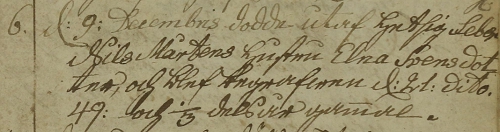 6. d: 9: Decembris dödde utaf hetsig feber
Nils Mårtens hustru Elna Svensdot
ter, och blef begrafven d: 21: dito.
49: och 1/3 dels år gammal.